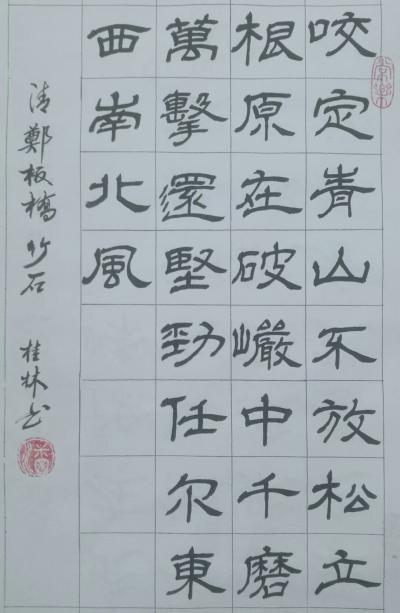 咬定青山不放松立
根原在破巖中千磨
萬擊還堅勁任尔東
西南北風
清鄭板橋竹石 桂林书